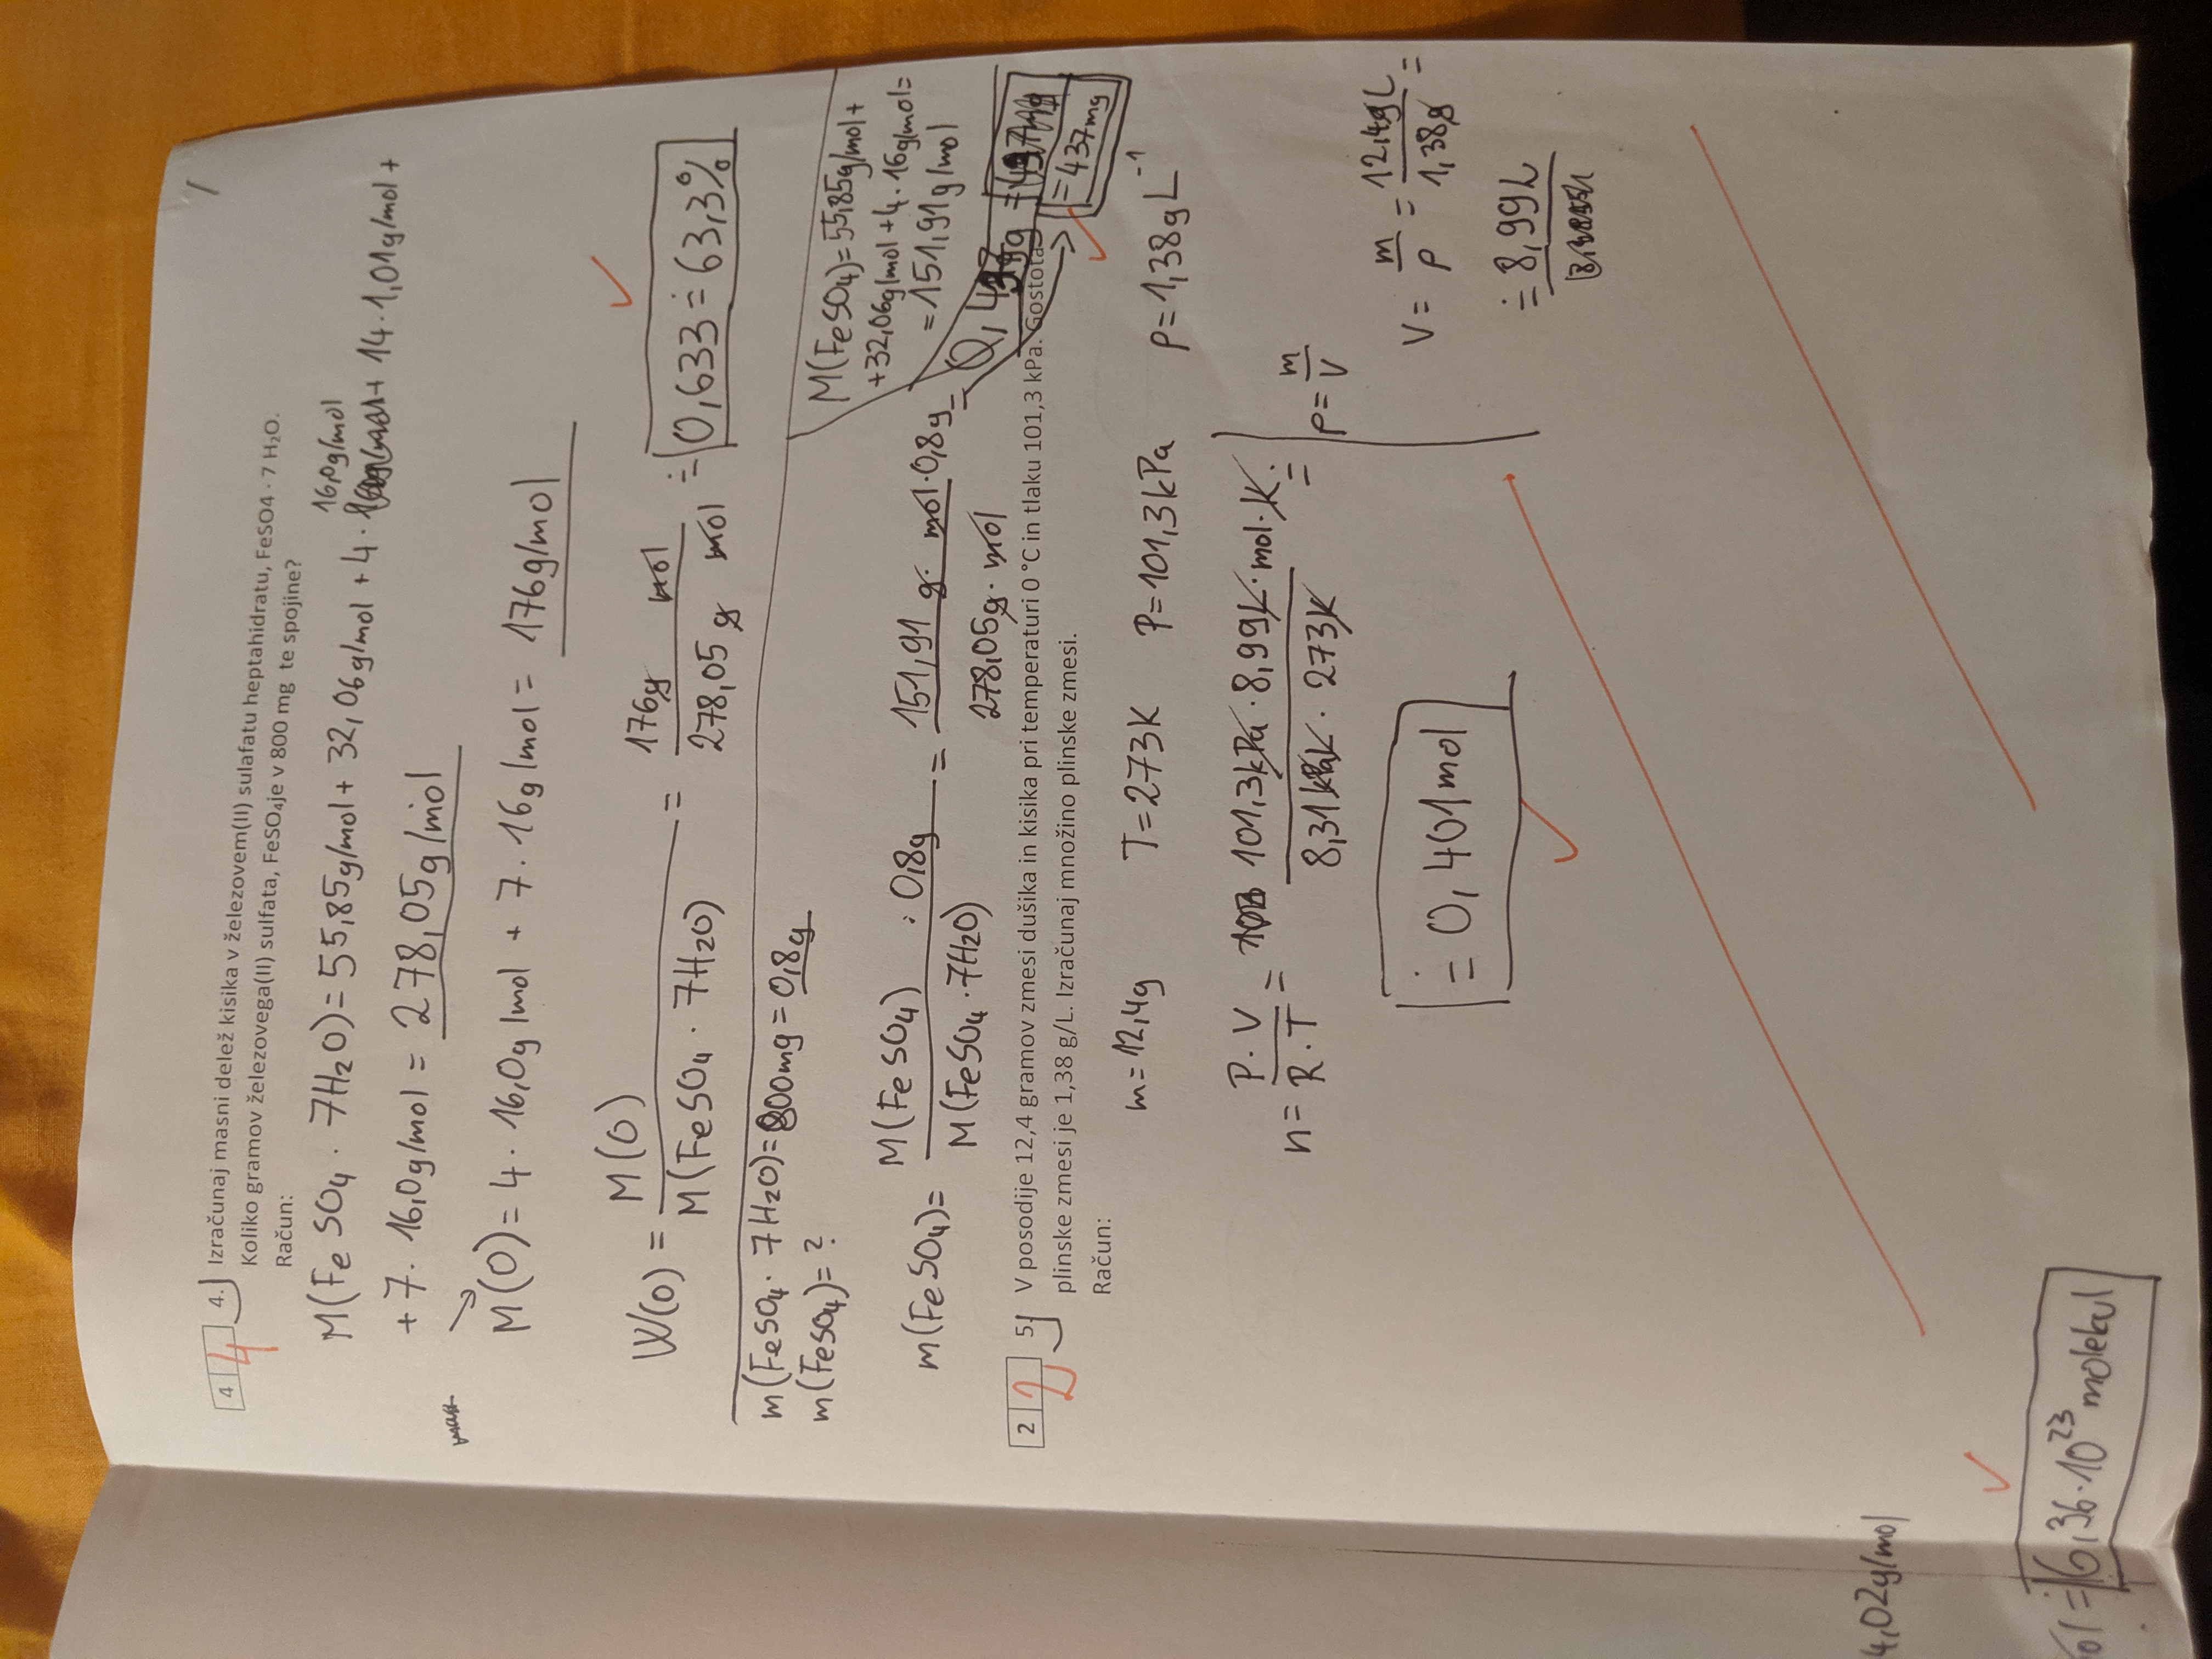 1
4 4 4. Izračunaj masni delež kisika v železovem(II) sulafatu heptahidratu, FeSO4 · 7 H₂O.
Koliko gramov železovega(II) sulfata, FeSO₄je v 800 mg te spojine?
Račun:
M(FeSO₄ · 7H₂O) = 55,85g/mol + 32,06g/mol + 4 · 16,0g/mol + 14 · 1,01g/mol +
+ 7 · 16,0g/mol = 278,05g/mol
M(O) = 4 · 16,0g/mol + 7 · 16g/mol = 176g/mol
W(O) = M(O) / M(FeSO₄ · 7H₂O) = 176g mol / 278,05g mol ≐ 0,633 ≐ 63,3%
m(FeSO₄ · 7H₂O) = 800mg = 0,8g
m(FeSO₄) = ?
M(FeSO₄) = 55,85g/mol +
+ 32,06g/mol + 4 · 16g/mol =
= 151,91g/mol
m(FeSO₄) = M(FeSO₄) · 0,8g / M(FeSO₄ · 7H₂O) = 151,91 g · mol · 0,8g / 278,05g · mol =
0,437g
= 437mg
2 2 5. V posodije 12,4 gramov zmesi dušika in kisika pri temperaturi 0 °C in tlaku 101,3 kPa. Gostota
plinske zmesi je 1,38 g/L. Izračunaj množino plinske zmesi.
Račun:
m = 12,4g T = 273K P = 101,3kPa ρ = 1,38gL⁻¹
n = P · V / R · T = 101,3kPa · 8,99L · mol · K / 8,31kPaL · 273K ≐
≐ 0,401mol
ρ = m / V
V = m / ρ = 12,4gL / 1,38g =
≐ 8,99L
4,02g/mol
ol ≐ 6,36 · 10²³ molekul